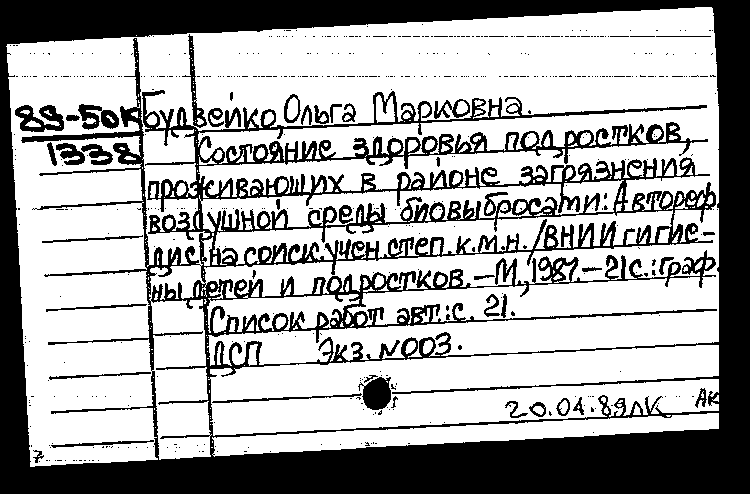 89-50к Будвейко, Ольга Марковна.
1338 Состояние здоровья подростков,
проживающих в районе загрязнения
воздушной среды биовыбросами: Автореф.
дис. на соиск. учен. степ. к.м.н. / ВНИИ гигие-
ны детей и подростков. – М., 1987. – 21 с.: граф.
Список работ авт.: с. 21.
ДСП Экз. N003.
20.04.89 ЛК АК